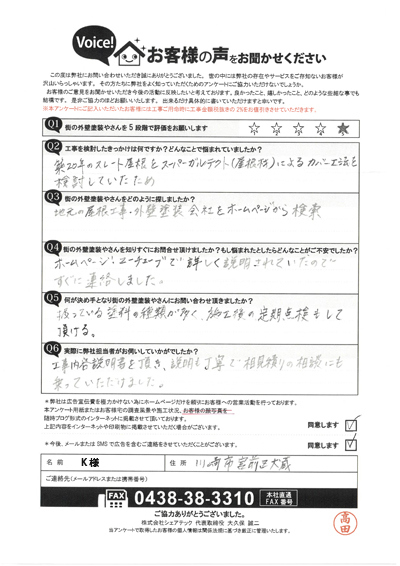 Voice!
お客様の声をお聞かせください
この度は弊社にお問い合わせいただき誠にありがとうございました。世の中には弊社の存在やサービスをご存知ないお客様が
沢山いらっしゃいます。その方たちに弊社をよく知っていただくためのアンケートにご協力いただけないでしょうか。
お客様のご意見をお聞かせいただき今後の活動に反映したいと考えております。良かったこと、嬉しかったこと、どのような些細な事でも
結構です。是非ご協力のほどお願いいたします。出来るだけ具体的に書いていただけますと幸いです。
※本アンケートにご記入いただいたお客様には工事ご用命時に工事金額税抜きの2%をお値引きさせていただきます。
Q1 街の外壁塗装やさんを5段階で評価をお願いします
☆ ☆ ☆ ☆ ★
Q2 工事を検討したきっかけは何ですか?どんなことで悩まれていましたか?
築20年のスレート屋根をスーパーガルテクト(屋根材)によるカバー工法を
検討していたため
Q3 街の外壁塗装やさんをどのように探しましたか?
地元の屋根工事・外壁塗装会社をホームページから検索
Q4 街の外壁塗装やさんを知りすぐにお問合せ頂けましたか?もし悩まれたとしたらどんなことがご不安でしたか?
ホームページ、ユーチューブで詳しく説明されていたので
すぐに連絡しました。
Q5 何が決め手となり街の外壁塗装やさんにお問い合わせ頂きましたか?
扱っている塗料の種類が多く、施工後の定期点検もして
頂ける。
Q6 実際に弊社担当者がお伺いしていかがでしたか?
工事内容説明書を頂き、説明も丁寧で相見積りの相談にも
乗っていただけました。
※弊社は広告宣伝費を極力かけない為にホームページだけを頼りにお客様への営業活動を行っております。
本アンケート用紙またはお客様宅の調査風景や施工状況、お客様の顔写真を
随時ブログ形式のインターネットに掲載させて頂いております。
上記内容をインターネットや印刷物に掲載させていただく場合がございます。
同意します ✓
※今後、メールまたはSMSで広告を含むご連絡をさせていただくことがございます。
同意します ✓
名前 K様 住所 川崎市宮前区犬蔵
ご連絡先(メールアドレスまたは携帯番号)
FAX 0438-38-3310 本社直通 FAX番号
ご協力ありがとうございました。
株式会社シェアテック 代表取締役 大久保 誠二
当アンケートで取得したお客様の個人情報は関係法規に基づき厳正に管理いたします。
高田